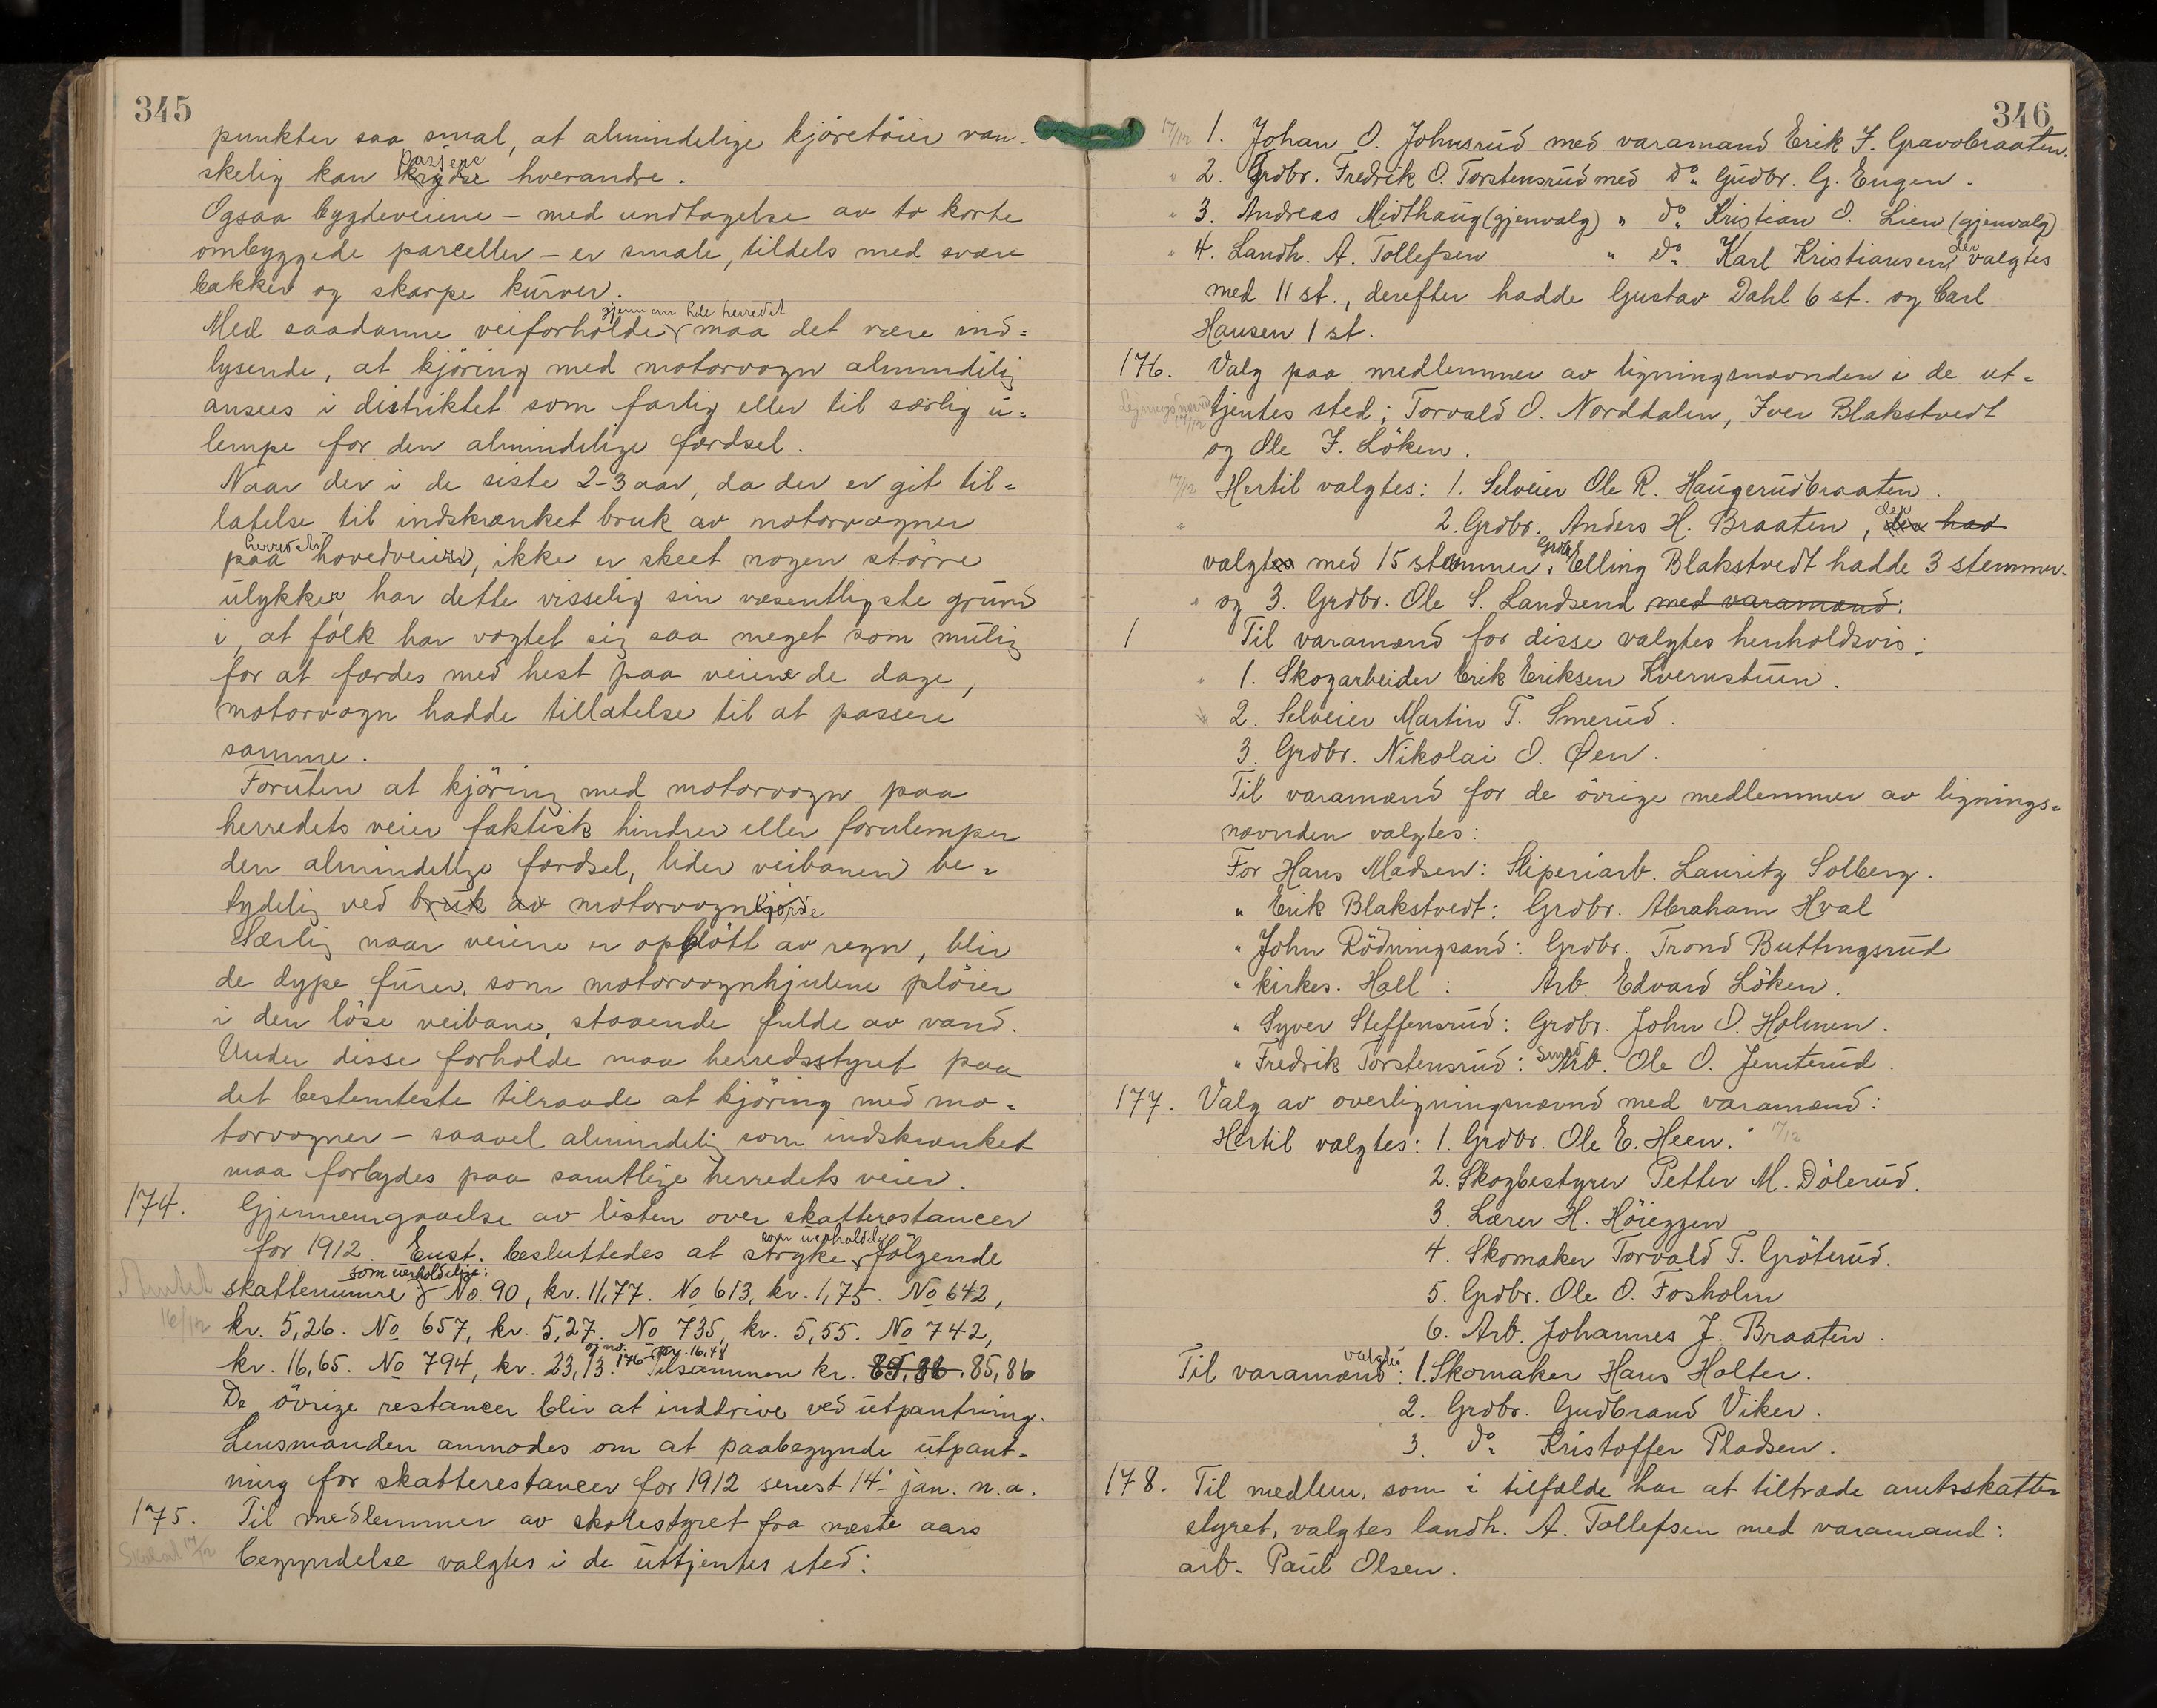 345
punkter saa smal, at almindelige kjöretöier van-
skelig kan passere hverandre.
Ogsaa bygdeveiene – med undtagelse av to korte
ombyggede parceller – er smale, tildels med svære
bakker og skarpe kurver.
Med saadanne veiforholde gjennem hele herredet maa det være ind=
lysende, at kjöring med motorvogn almindelig
ansees i distriktet som farlig eller til særlig u=
lempe for den almindelige færdsel.
Naar der i de siste 2-3 aar, da der er git til=
latelse til indskrænket bruk av motorvogner
paa herredets hovedveier, ikke er skeet nogen större
ulykker, har dette visselig sin væsentligste grund
i, at folk har vogtet sig saa meget som mulig
for at færdes med hest paa veiene de dage,
motorvogn hadde tillatelse til at passere
samme.
Foruten at kjöring med motorvogn paa
herredets veier faktisk hindrer eller forulemper
den almindelige færdsel, lider veibanen be=
tydelig ved bruk av motorvogn
Særlig naar veiene er opblött av regn, blir
de dype furer, som motorvognhjulene plöier
i den löse veibane, staaende fulde av vand.
Under disse forholde maa herredsstyret paa
det bestemteste tilraade at kjöring med mo=
torvogner – saavel almindelig som indskrænket
maa forbydes paa samtlige herredets veier.
174. Gjennemgaaelse av listen over skatterestancer
for 1912. Enst. besluttedes at stryke som uerholdelig følgende
skattenumre som uerholdelige: No. 90, kr. 11,77. No 613, kr. 1,75. No 642,
16/12 kr. 5,26. No 657, kr. 5,27. No 735, kr. 5,55. No 742,
kr. 16,65. No 794, kr. 23,13. og no. 176 kr. 16,48 Tilsammen kr. 85,86. 85,86
De övrige restancer blir at inddrive ved utpantning.
Lensmanden anmodes om at paabegynde utpant=
ning for skatterestancer for 1912 senest 14. jan. n.a.
175. Til medlemmer av skolestyret fra næste aars
begyndelse valgtes i de uttjentes sted:
346
17/12 1. Johan O. Johnsrud med varamand Erik J. Gravbraaten.
" 2. Grdbr. Fredrik O. Torstensrud med do. Gudbr. G. Engen.
" 3. Andreas Midthaug (gjenvalg) " do. Kristian O. Lien (gjenvalg)
" 4. Landh. A. Tollefsen " do. Karl Kristiansen, der valgtes
med 11 st., derefter hadde Gustav Dahl 6 st. og Carl
Hansen 1 st.
176. Valg paa medlemmer av ligningsnævnden i de ut=
tjentes sted: Torvald O. Norddalen, Iver Blakstvedt
og Ole J. Löken.
17/12 Hertil valgtes: 1. Selveier Ole R. Haugerudbraaten.
" 2. Grdbr. Anders H. Braaten, der had
valgtes med 15 stemmer, Grdbr. Elling Blakstvedt hadde 3 stemmer.
" og 3. Grdbr. Ole S. Landsend med varamænd:
1 Til varamænd for disse valgtes henholdsvis:
" 1. Skogarbeider Erik Eriksen Kvernstuen.
" 2. Selveier Martin T. Smerud.
3. Grdbr. Nikolai O. Øen.
Til varamænd for de övrige medlemmer av lignings=
nævnden valgtes:
For Hans Madsen: Sliperiarb. Lauritz Solberg.
" Erik Blakstvedt: Grdbr. Abraham Hval
" John Rödningsand: Grdbr. Trond Buttingsrud
" kirkes. Hall: Arb. Edvard Löken.
" Syver Steffensrud: Grdbr. John O. Holmen.
" Fredrik Torstensrud: Smed Arb. Ole O. Jemterud.
177. Valg av overligningsnævnd med varamænd:
Hertil valgtes: 1. Grdbr. Ole E. Heen. 17/12
2. Skogbestyrer Petter M. Dölerud.
3. Lærer H. Höieggen
4. Skomaker Torvald T. Gröterud.
5. Grdbr. Ole O. Fosholm
6. Arb. Johannes J. Braaten.
Til varamænd valgtes: 1. Skomaker Hans Holter.
2. Grdbr. Gudbrand Viker.
3. do. Kristoffer Pladsen.
178. Til medlem, som i tilfælde har at tiltræde amtsskatte=
styret, valgtes landh. A. Tollefsen med varamand:
arb. Paul Olsen.